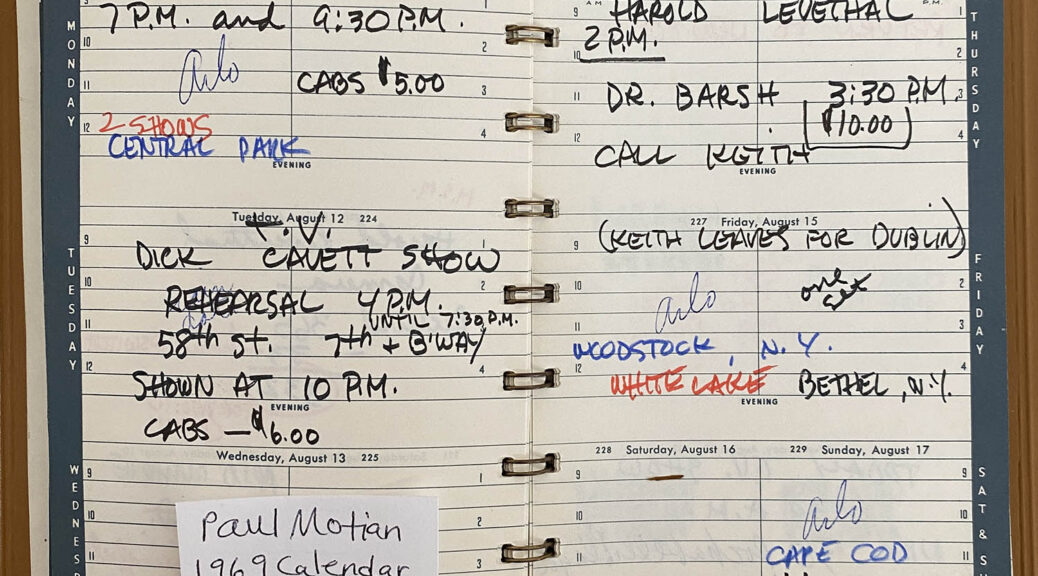 MONDAY
7 P.M. and 9:30 P.M.
10
2
Arlo
11
CABS $5.00
3
2 SHOWS
12
4
CENTRAL PARK
EVENING
Tuesday, August 12 224
T.V.
9
1
DICK CAVETT SHOW
TUESDAY
10
2
REHEARSAL 4 P.M.
UNTIL 7:30 P.M.
11
58th St. 7th + B'WAY
12
4
SHOWN AT 10 P.M.
EVENING
CABS — $6.00
Wednesday, August 13 225
9
1
WEDNESD
10
2
11
3
Paul Motian
1969 Calendar
HAROLD LEVETHAL
9
A M
P. M.
1
2 P.M.
10
2
THURSDAY
11
DR. BARSH 3:30 P.M.
3
$10.00
12
4
CALL KEITH
EVENING
227 Friday, August 15
9
1
(KEITH LEAVES FOR DUBLIN)
FRIDAY
10
2
Arlo
one set
11
3
WOODSTOCK, N.Y.
12
4
WHITE LAKE BETHEL, N.Y.
EVENING
228 Saturday, August 16 229 Sunday, August 17
9
9
SAT & S
10
10
Arlo
11
11
CAPE COD